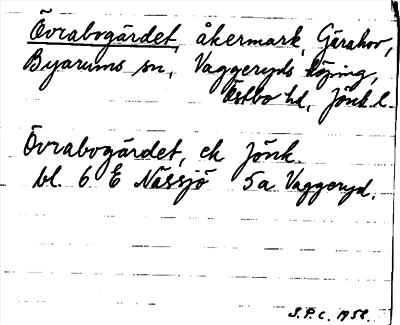 Övrabogärdet, åkermark, Gärahov,
Byarums sn, Vaggeryds köping,
Östbo hd, Jönk. l.
Övrabogärdet, ek Jönk.
bl. 6 E Nässjö 5a Vaggeryd.
S.P.C. 1958.